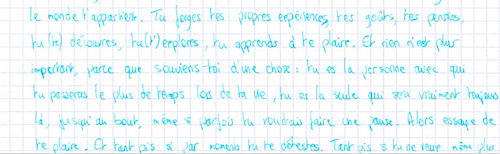 le monde t'appartient. Tu forges tes propres expériences, tes goûts, tes pensées,
tu (te) découvres, tu (t')explores, tu apprends à te plaire. Et rien n'est plus
important, parce que souviens-toi d'une chose : tu es la personne avec qui
tu passeras le plus de temps lors de ta vie, tu es la seule qui sera vraiment toujours
là, jusqu'au bout, même si parfois tu voudrais faire une pause. Alors essaye de
te plaire. Et tant pis si par moments tu te détestes. Tant pis si tu ne veux même plus